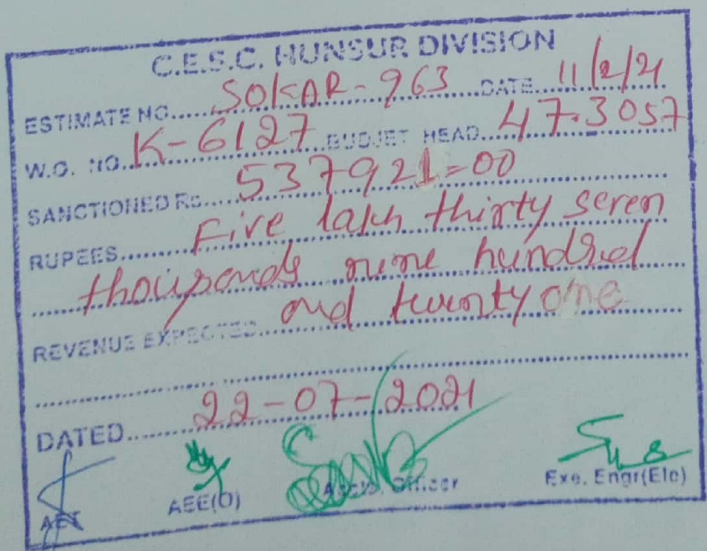 C.E.S.C. HUNSUR DIVISION
ESTIMATE NO. SOKAR-963 DATE 11/2/21
W.O. NO. K-6127 BUDJET HEAD 47.3057
SANCTIONED Rs. 537921=00
RUPEES Five lakh thirty seven
thousands nine hundred
REVENUE EXPECTED and twenty one
DATED 22-07-2021
AET AEE(O) Accts. Officer Exe. Engr(Ele)